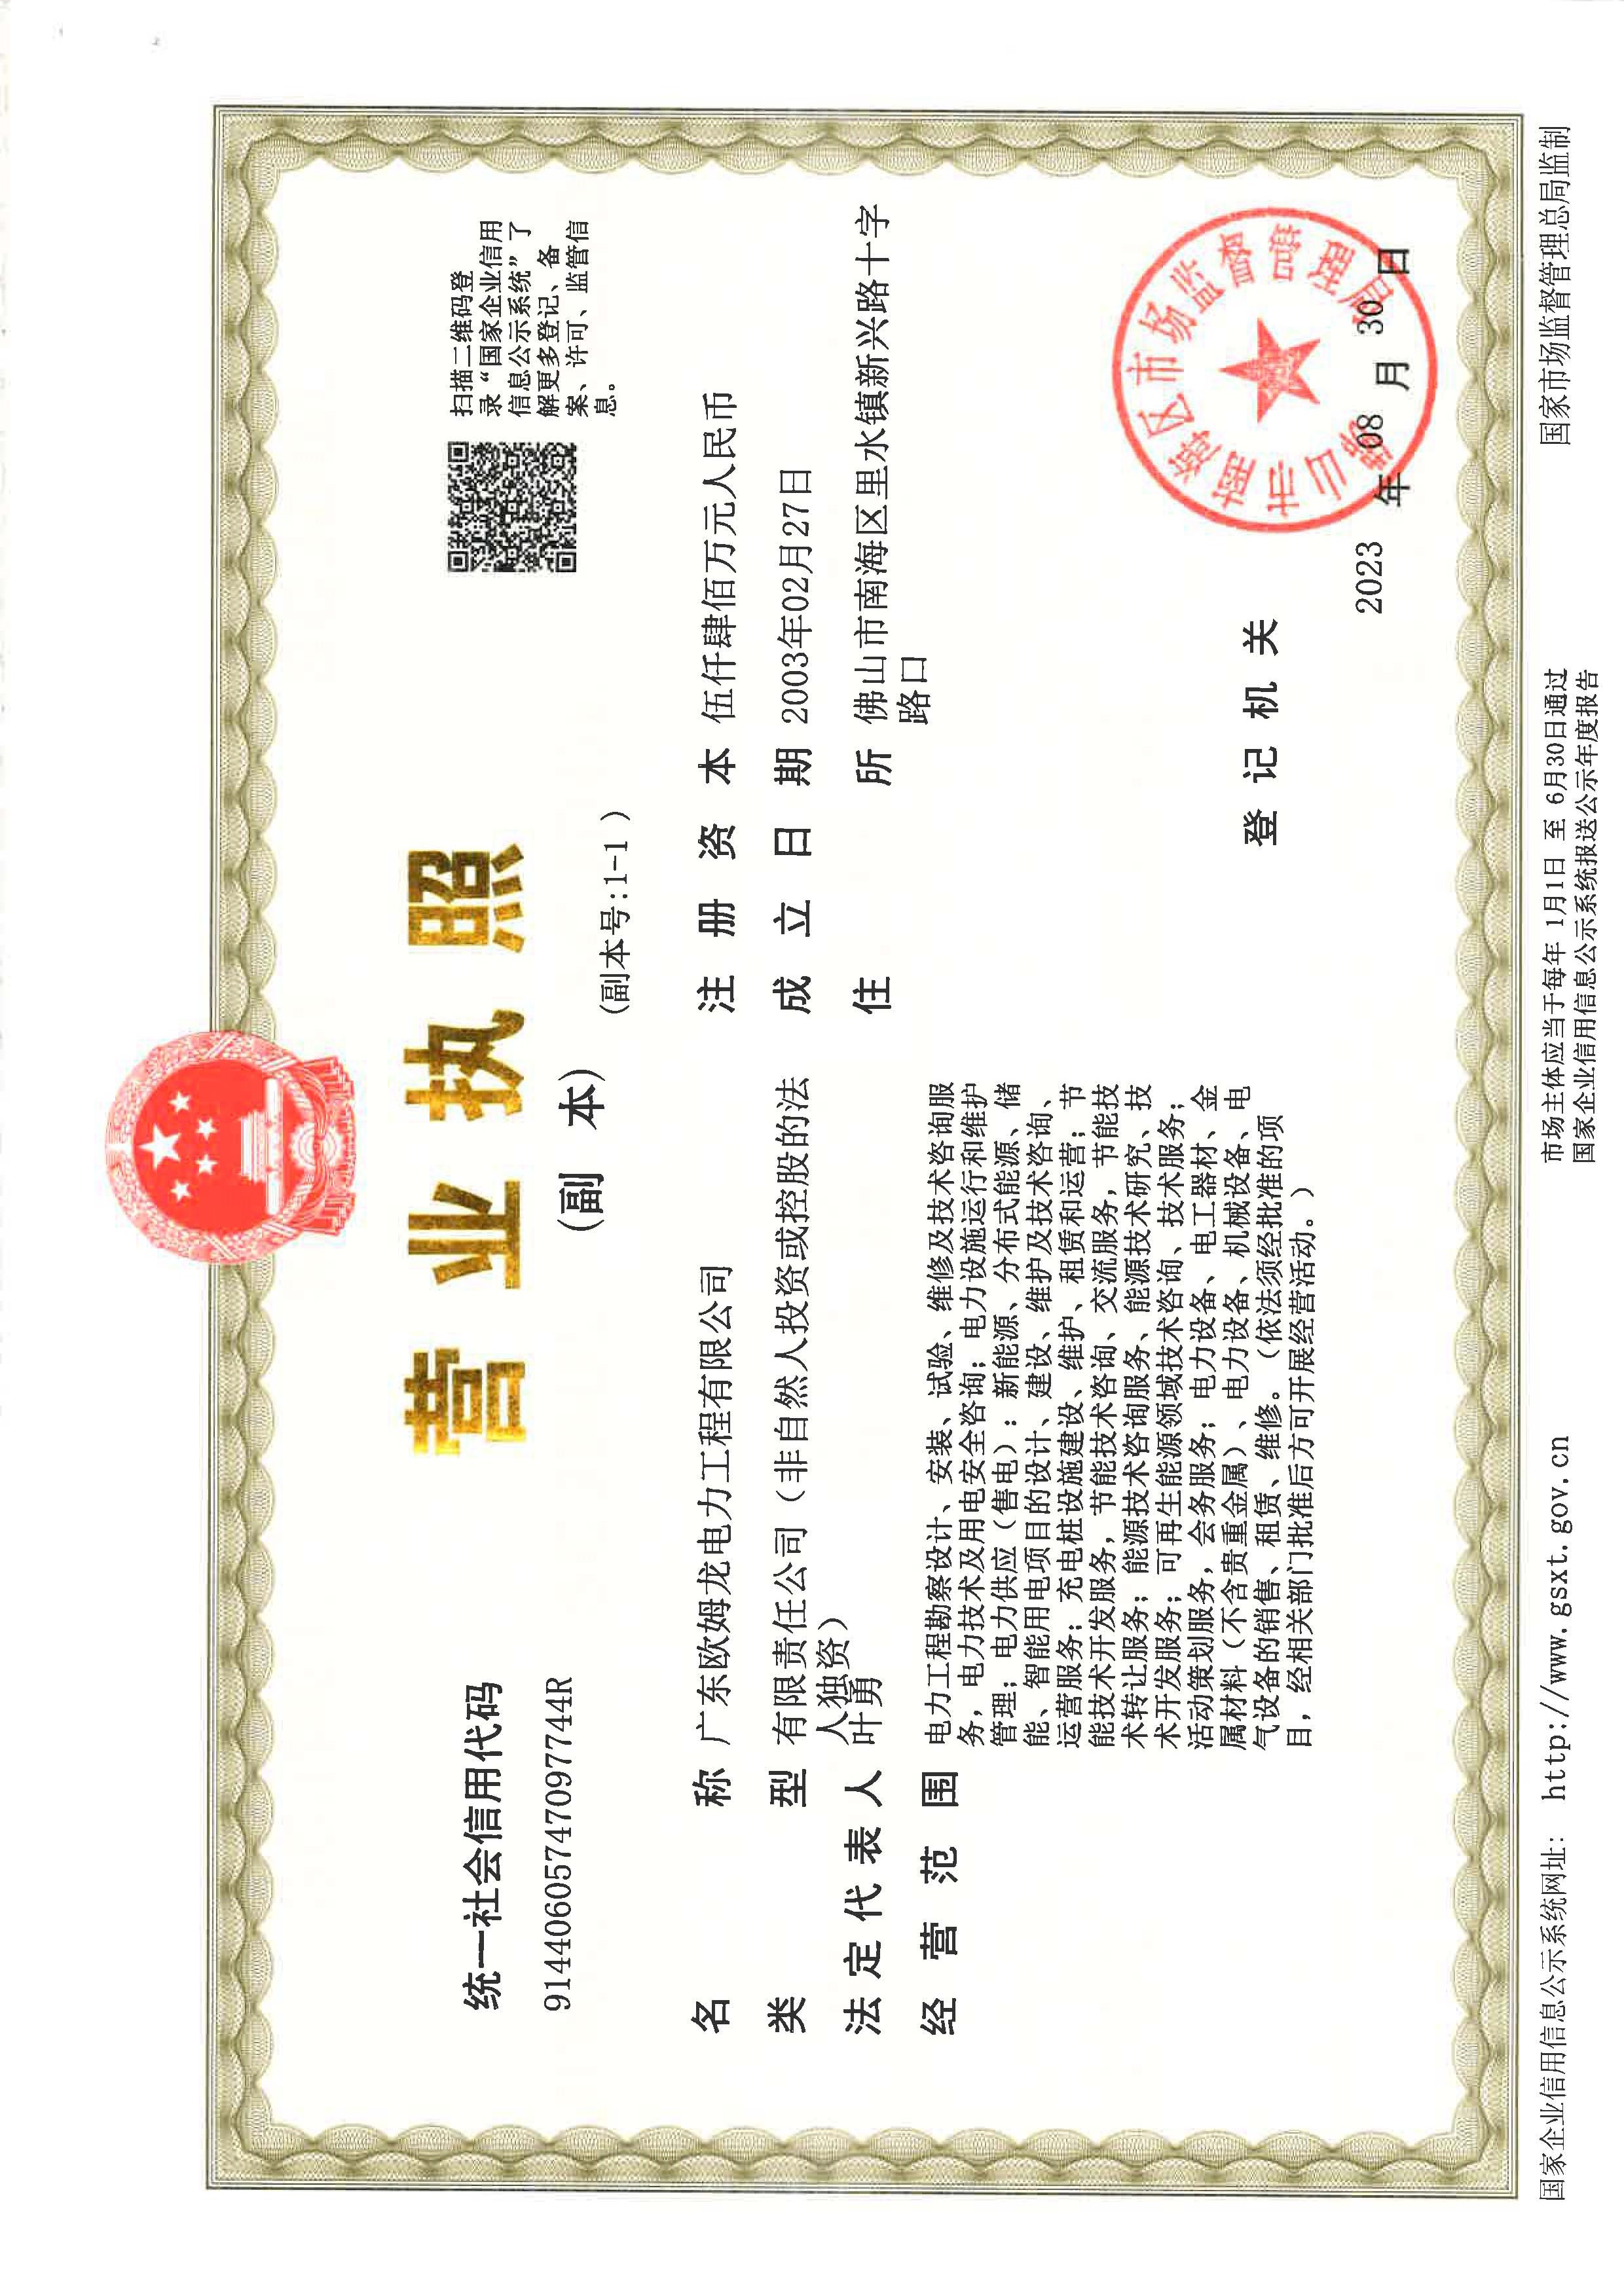 统一社会信用代码
91440605747097744R
营业执照
(副 本)
(副本号:1-1 )
扫描二维码登
录“国家企业信用
信息公示系统”了
解更多登记、备
案、许可、监管信
息。
名 称 广东欧姆龙电力工程有限公司
类 型 有限责任公司（非自然人投资或控股的法
人独资）
法定代表人 叶勇
经营范围 电力工程勘察设计、安装、试验、维修及技术咨询服
务，电力技术及用电安全咨询；电力设施运行和维护
管理；电力供应（售电）：新能源、分布式能源、储
能、智能用电项目的设计、建设、维护及技术咨询、
运营服务；充电桩设施建设、维护、租赁和运营；节
能技术开发服务，节能技术咨询、交流服务，节能技
术转让服务；能源技术咨询服务、能源技术研究、技
术开发服务；可再生能源领域技术咨询、技术服务；
活动策划服务，会务服务；电力设备、电工器材、金
属材料（不含贵重金属）、电力设备、机械设备、电
气设备的销售、租赁、维修。（依法须经批准的项
目，经相关部门批准后方可开展经营活动。）
注册资本 伍仟肆佰万元人民币
成立日期 2003年02月27日
住 所 佛山市南海区里水镇新兴路十字
路口
登记机关
佛山市南海区市场监督管理局
2023 年 08 月 30 日
国家企业信用信息公示系统网址： http://www.gsxt.gov.cn
市场主体应当于每年 1月1日 至 6月30日通过
国家企业信用信息公示系统报送公示年度报告
国家市场监督管理总局监制